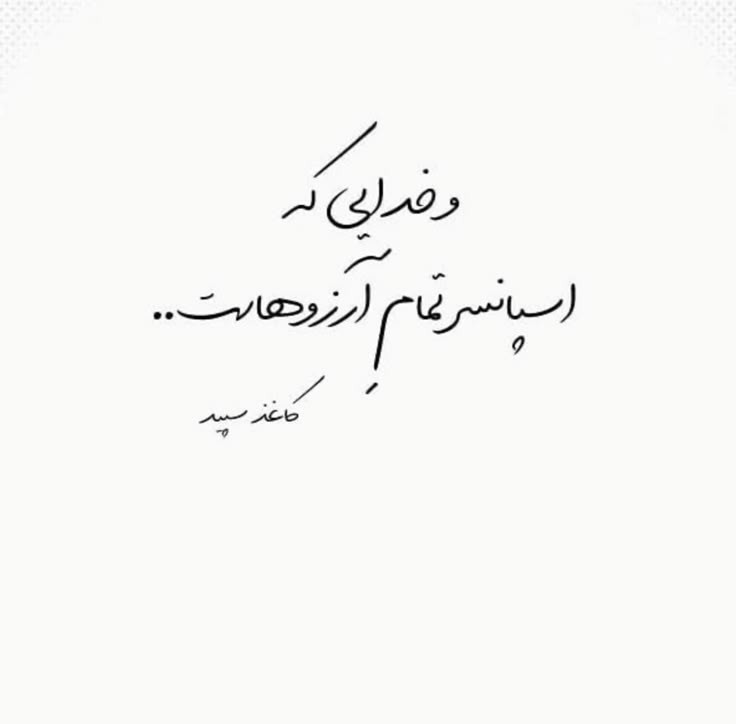 و خدایی که
اسپانسر تمام آرزوهاست..
کاغذ سپید